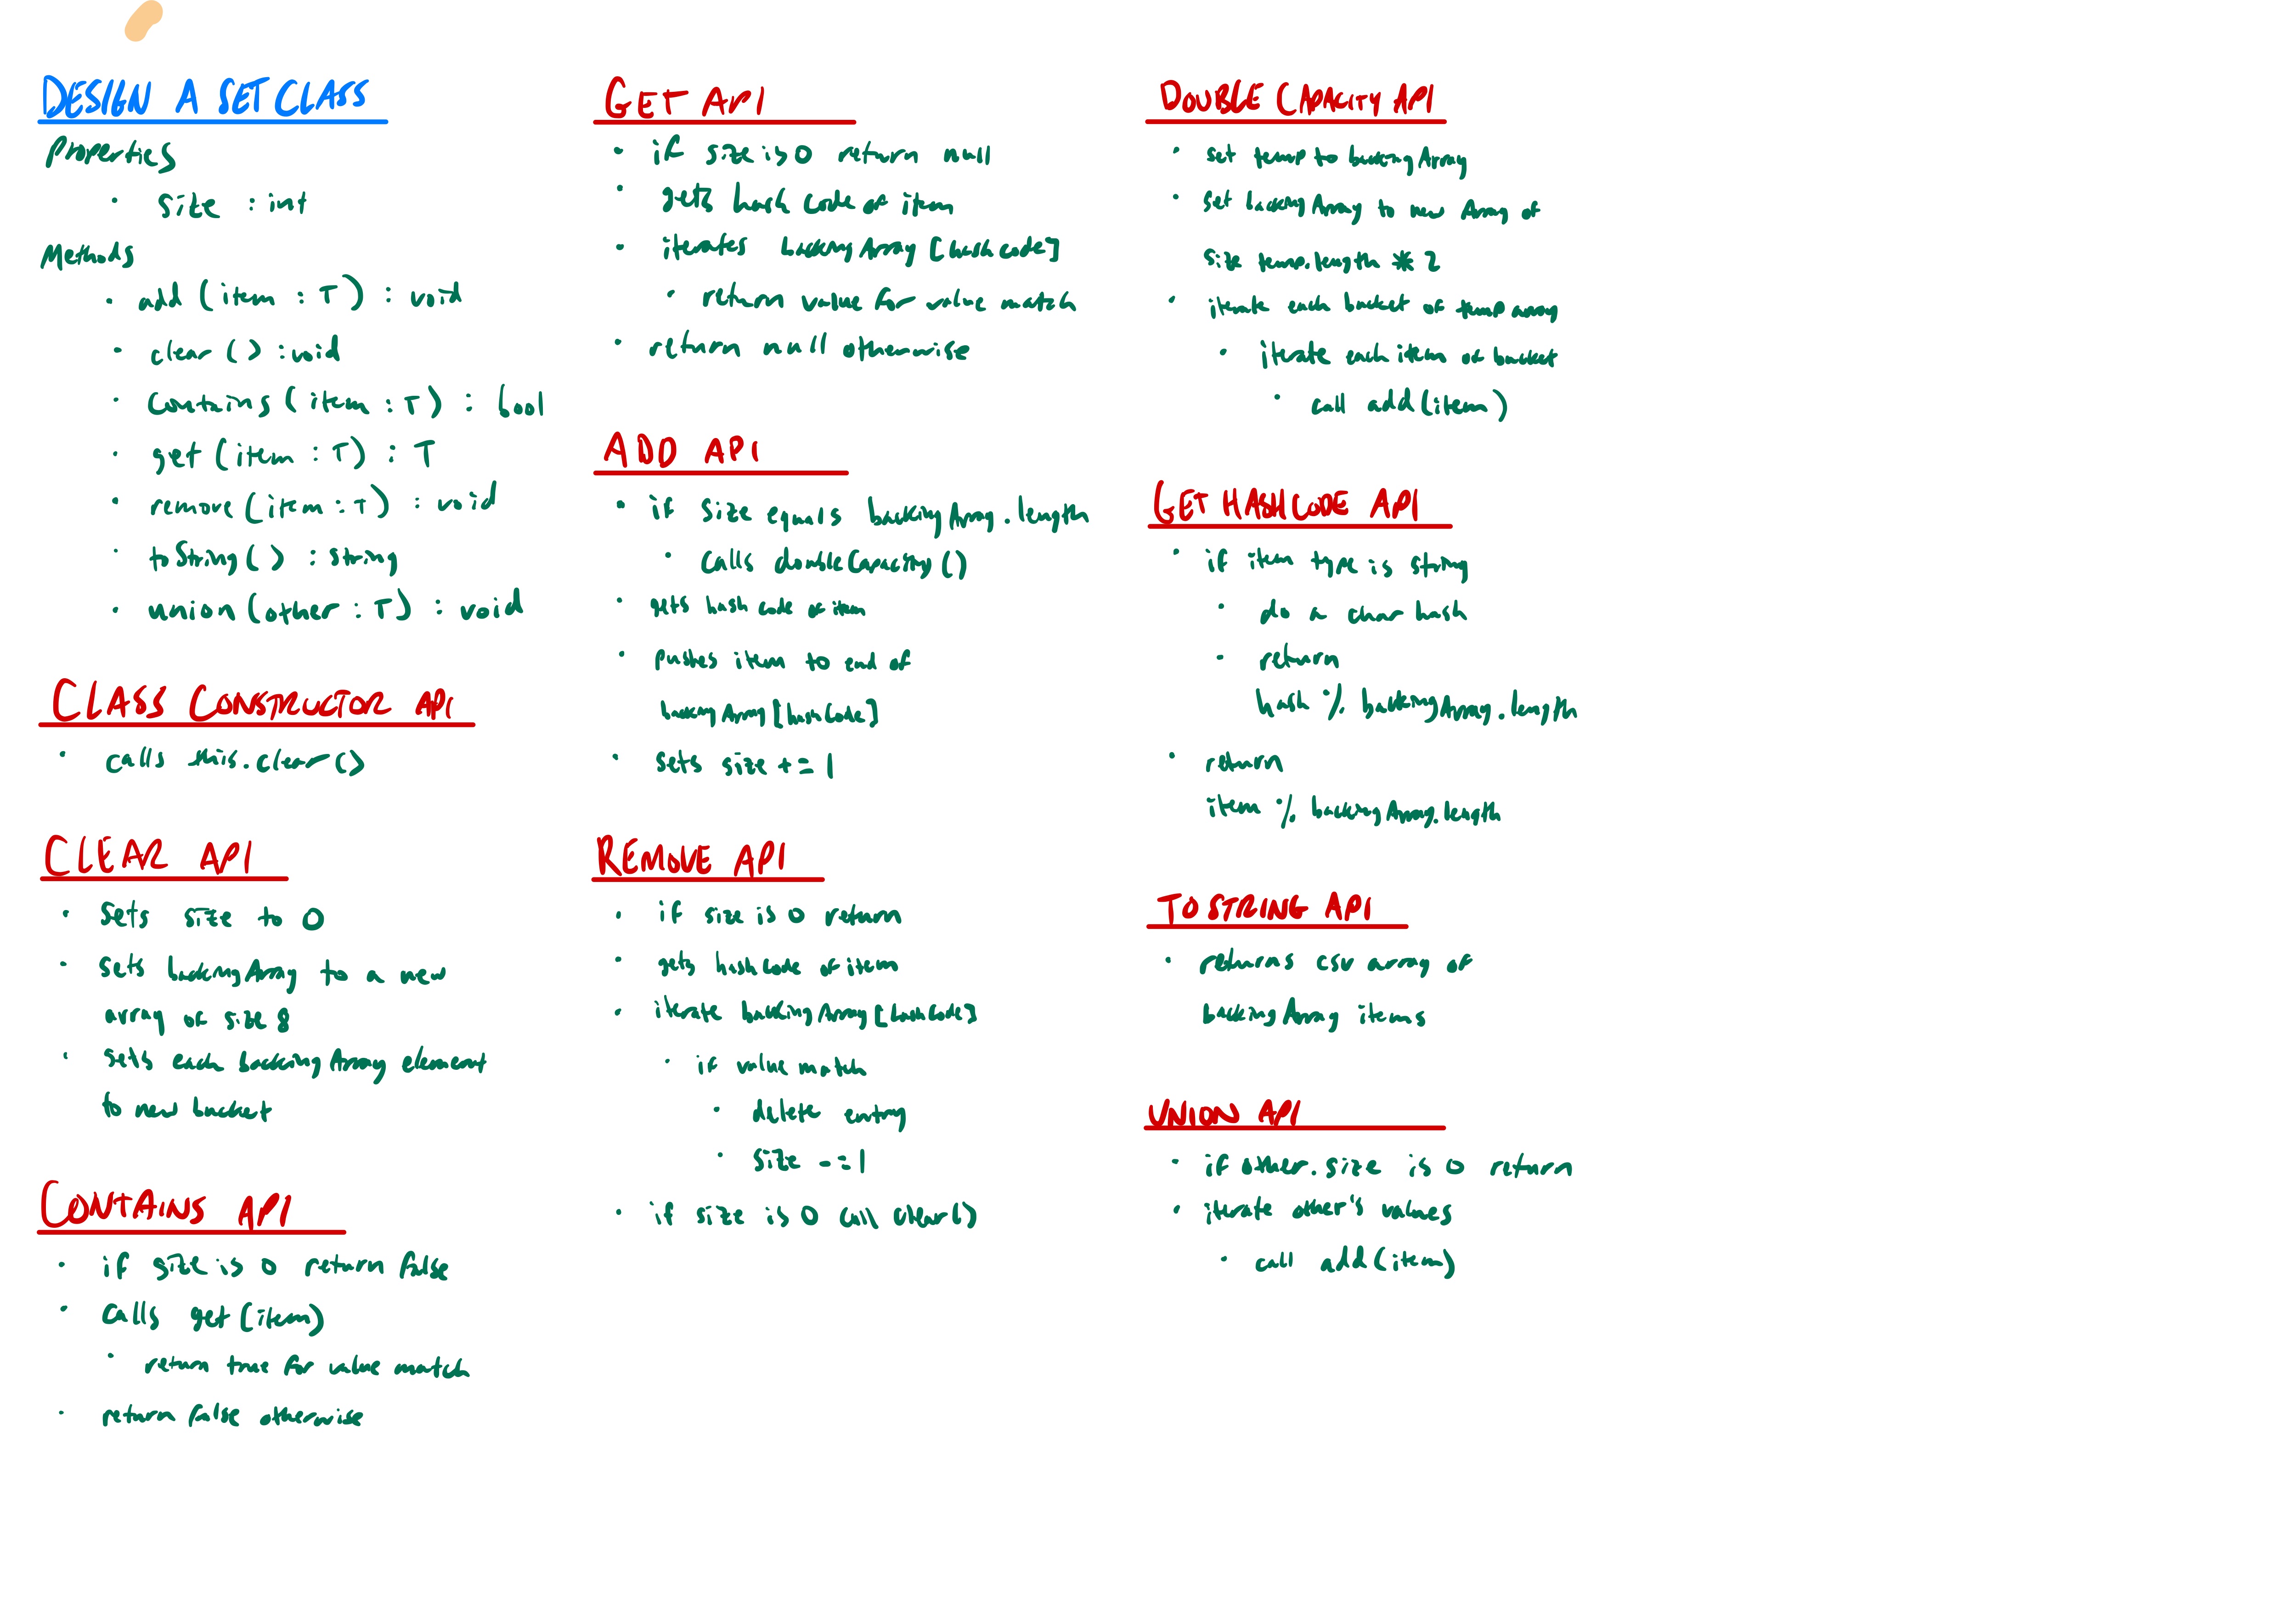 DESIGN A SET CLASS
Properties
• size : int
Methods
• add (item : T) : void
• clear () : void
• contains (item : T) : bool
• get (item : T) : T
• remove (item : T) : void
• toString () : string
• union (other : T) : void
CLASS CONSTRUCTOR API
• calls this.clear()
CLEAR API
• sets size to 0
• sets backingArray to a new
array of size 8
• sets each backingArray element
to new bucket
CONTAINS API
• if size is 0 return false
• calls get(item)
• return true for value match
• return false otherwise
GET API
• if size is 0 return null
• gets hash code of item
• iterates backingArray [hashcode]
• return value for value match
• return null otherwise
ADD API
• if size equals backingArray.length
• calls doubleCapacity()
• gets hash code of item
• pushes item to end of
backingArray[hashCode]
• sets size += 1
REMOVE API
• if size is 0 return
• gets hashcode of item
• iterate backingArray[hashCode]
• if value match
• delete entry
• size -= 1
• if size is 0 call clear()
DOUBLE CAPACITY API
• set temp to backingArray
• set backingArray to new Array of
size temp.length * 2
• iterate each bucket of temp array
• iterate each item of bucket
• call add(item)
GET HASHCODE API
• if item type is string
• do a char hash
• return
hash % backingArray.length
• return
item % backingArray.length
TO STRING API
• returns csv array of
backingArray items
UNION API
• if other.size is 0 return
• iterate other's values
• call add(item)